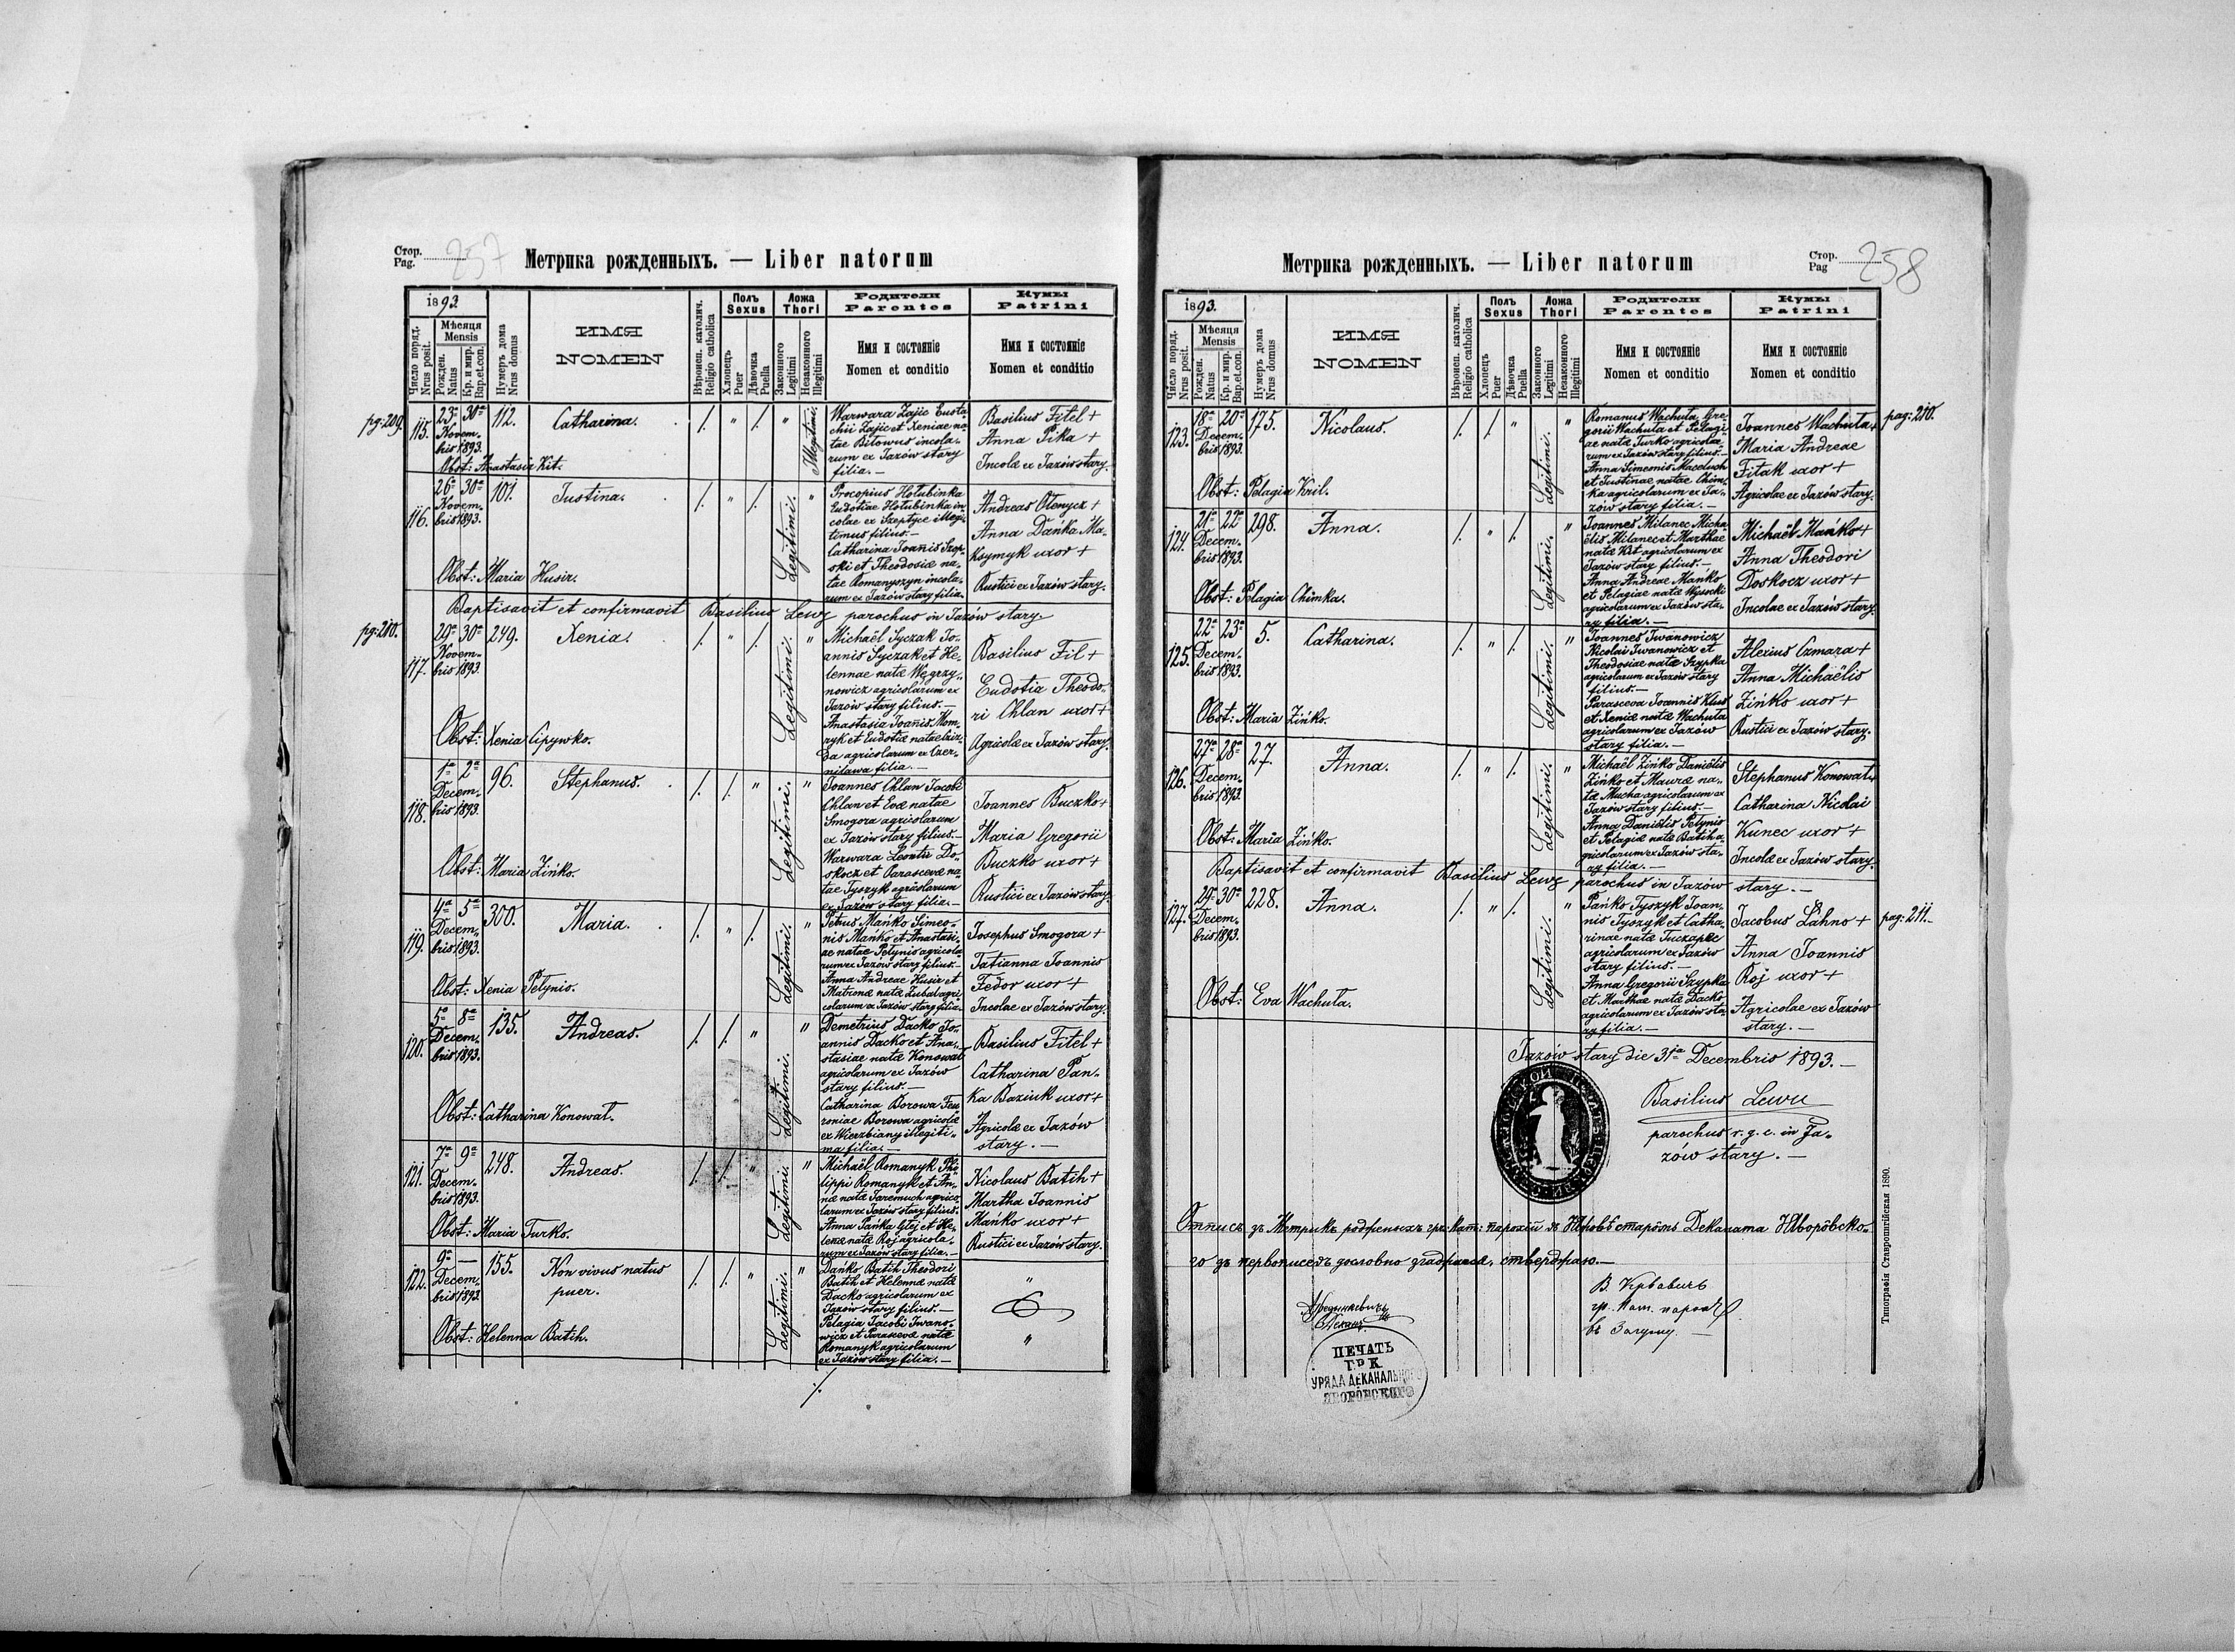 Стор.
Pag. 257
Метрика рожденныхъ. — Liber natorum
1893
Число поряд.
Nrus posit.
Мѣсяця
Mensis
Рожден.
Natus
Кр. и мир.
Bap.et.con.
Нумеръ дома
Nrus domus
ИМЯ
NOMEN
Вѣроисп. католич.
Religio catholica
Полъ
Sexus
Хлопецъ
Puer
Дѣвочка
Puella
Ложа
Thori
Законного
Legitimi
Незаконного
Illegitimi
Родители
Parentes
Имя и состоянiе
Nomen et conditio
Кумы
Patrini
Имя и состоянiе
Nomen et conditio
pg: 209.
115.
23ª 30ª
Novem-
bris 1893.
112.
Catharina.
Illegitimi.
Warwara Zajic Eusta
chii Zajic et Xeniae na
tae Bitowus incola-
rum ex Jazów stary
filia. —
Basilius Fitel +
Anna Pika +
Incolae ex Jazów stary.
Obst: Anastasia Kit.
116.
26ª 30ª
Novem-
bris 1893.
101.
Justina.
Legitimi.
Procopius Hołubinka
Eudotiae Hołubinka in
colae ex Szeptyce illegi-
timus filius. —
Catharina Joannis Szop-
ski et Theodosiae na-
tae Romanyszyn incola-
rum ex Jazów stary filia.
Andreas Olenycz +
Anna Dańka Ma-
ksymyk uxor +
Rustici ex Jazów stary.
Obst: Maria Husir.
Baptisavit et confirmavit Basilius Lewy parochus in Jazów stary.
pg: 210.
117.
29ª 30ª
Novem-
bris 1893.
249.
Xenia.
Legitimi.
Michaël Syczak Jo-
annis Syczak et He-
lennae natae Węgrzy-
nowicz agricolarum ex
Jazów stary filius. —
Anastasia Joannis Mom-
ryk et Eudotiae natae
agricolarum ex Czer-
nilawa filia. —
Basilius Fil +
Eudotia Theodo-
ri Chlan uxor +
Agricolae ex Jazów stary.
Obst: Xenia Lipywko.
118.
1ª 2ª
Decem-
bris 1893.
96.
Stephanus.
Legitimi.
Joannes Chlan Jacobi
Chlan et Evae natae
Smogora agricolarum
ex Jazów stary filius. —
Warwara Leontii Do-
skocz et Parascevae na-
tae Tyszyk agricolarum
ex Jazów stary filia. —
Joannes Buczko +
Maria Gregorii
Buczko uxor +
Rustici ex Jazów stary.
Obst: Maria Zińko.
119.
4ª 5ª
Decem-
bris 1893.
300.
Maria.
Legitimi.
Petrus Mańko Simeo-
nis Mańko et Anastasi-
ae natae Petynio agricola-
rum ex Jazów stary filius. —
Anna Andreae Husir et
Matronae natae Zubal agri-
colarum ex Jazów stary filia.
Josephus Smogora +
Tatianna Joannis
Fedor uxor +
Incolae ex Jazów stary.
Obst: Xenia Petynio.
120.
5ª 8ª
Decem-
bris 1893.
135.
Andreas.
Legitimi.
Demetrius Dacko Jo-
annis Dacko et Ana-
stasiae natae Konowat
agricolarum ex Jazów
stary filius. —
Catharina Borowa Feu
roniae Borowa agricolae
ex Wierzbiany illegiti-
ma filia. —
Basilius Fitel +
Catharina Pan-
ka Baziuk uxor +
Agricolae ex Jazów
stary. —
Obst: Catharina Konowat.
121.
7ª 9ª
Decem-
bris 1893.
248.
Andreas.
Legitimi.
Michaël Romanyk Phi
lippi Romanyk et An-
nae natae Jaremuch agrico-
larum ex Jazów stary filius.
Anna Pańka Glej et He-
lenae natae Roj agricola-
rum ex Jazów stary filia. —
Nicolaus Batih +
Martha Joannis
Mańko uxor +
Rustici ex Jazów stary.
Obst: Maria Turko.
122.
9ª —
Decem-
bris 1893.
155.
Non vivus natus
puer.
Legitimi.
Dańko Batih Theodori
Batih et Helennae natae
Dacko agricolarum ex
Jazów stary filius. —
Pelagia Jacobi Iwano-
wicz et Parascevae natae
Romanyk agricolarum
ex Jazów stary filia. —
Obst: Helenna Batih.
Метрика рожденныхъ. — Liber natorum
Стор.
Pag 258
1893.
Число поряд.
Nrus posit.
Мѣсяця
Mensis
Рожден.
Natus
Кр. и мир.
Bap.et.con.
Нумеръ дома
Nrus domus
ИМЯ
NOMEN
Вѣроисп. католич.
Religio catholica
Полъ
Sexus
Хлопецъ
Puer
Дѣвочка
Puella
Ложа
Thori
Законного
Legitimi
Незаконного
Illegitimi
Родители
Parentes
Имя и состоянiе
Nomen et conditio
Кумы
Patrini
Имя и состоянiе
Nomen et conditio
123.
18ª 20ª
Decem-
bris 1893.
175.
Nicolaus.
Legitimi.
Romanus Wachuta Gre-
gorii Wachuta et Pelagi-
ae natae Turko agricola-
rum ex Jazów stary filius. —
Anna Simeonis Maceluch
et Justinae natae Chim-
ka agricolarum ex Ja-
zów stary filia. —
Joannes Wachuta +
Maria Andreae
Fitak uxor +
Agricolae ex Jazów stary.
pag: 210.
Obst: Pelagia Kril.
124.
21ª 22ª
Decem-
bris 1893.
298.
Anna.
Legitimi.
Joannes Milanec Micha-
ëlis Milanec et Marthae
natae Kit agricolarum ex
Jazów stary filius. —
Anna Andreae Mańko
et Pelagiae natae Wysocki
agricolarum ex Jazów sta-
ry filia. —
Michaël Mańko +
Anna Theodori
Doskocz uxor +
Incolae ex Jazów stary.
Obst: Pelagia Chimka.
125.
22ª 23ª
Decem-
bris 1893.
5.
Catharina.
Legitimi.
Joannes Iwanowicz
Nicolai Iwanowicz et
Theodosiae natae Szypka
agricolarum ex Jazów stary
filius. —
Parasceva Joannis Klus
et Xeniae natae Wachuta
agricolarum ex Jazów
stary filia. —
Alexius Czmara +
Anna Michaëlis
Zińko uxor +
Rustici ex Jazów stary.
Obst: Maria Zińko.
126.
27ª 28ª
Decem-
bris 1893.
27.
Anna.
Legitimi.
Michaël Zińko Daniëlis
Zińko et Maurae na-
tae Mucha agricolarum ex
Jazów stary filius. —
Anna Daniëlis Petynio
et Pelagiae natae Batih a-
gricolarum ex Jazów sta-
ry filia. —
Stephanus Konowat +
Catharina Nicolai
Kunec uxor +
Incolae ex Jazów stary.
Obst: Maria Zińko.
Baptisavit et confirmavit Basilius Lewy parochus in Jazów stary. —
127.
29ª 30ª
Decem-
bris 1893.
228.
Anna.
Legitimi.
Pańko Tyszyk Joan-
nis Tyszyk et Catha-
rinae natae Tuczapec
agricolarum ex Jazów
stary filius. —
Anna Gregorii Szypka
et Marthae natae Dacko
agricolarum ex Jazów sta-
ry filia. —
Jacobus Lahno +
Anna Joannis
Roj uxor +
Agricolae ex Jazów
stary. —
pag: 211.
Obst: Eva Wachuta.
Jazów stary die 31ª Decembris 1893. —
Basilius Lewy
parochus r. g. c. in Ja-
zów stary. —
Отписъ зъ Метрикъ рожденныхъ гр. кат: парохіи въ Язôвѣ старôмъ Деканата Яворôвско-
го зъ первописемъ дословно згаджаєся, стверджаю. —
гр. кат. парохъ
въ Залужу —
Деканъ
ПЕЧАТЬ
ГР. К.
УРЯДА ДЕКАНАЛЬНОГО
ЯВОРÔВСКОГО
Типографія Ставропигійская 1890.